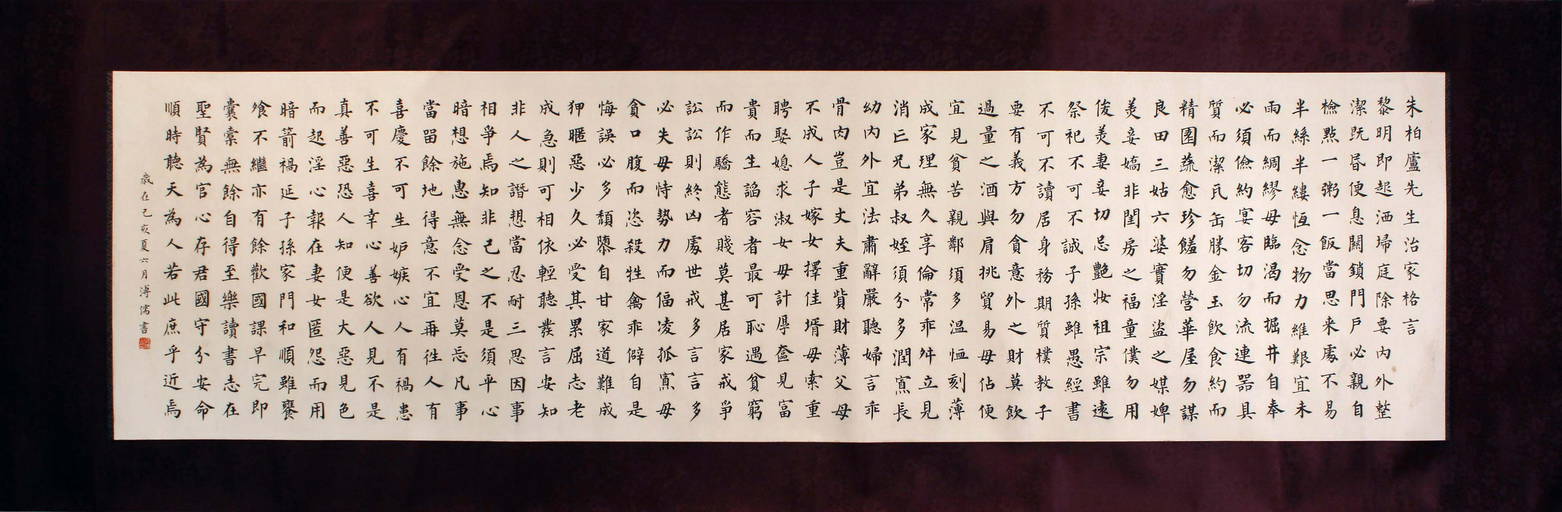 朱柏廬先生治家格言
黎明即起洒埽庭除要內外整
潔既昏便息關鎖門戶必親自
檢點一粥一飯當思来處不易
半絲半縷恆念物力維艱宜未
雨而綢繆毋臨渴而掘井自奉
必須儉約宴客切勿流連器具
質而潔瓦缶勝金玉飲食約而
精園蔬愈珍饈勿營華屋勿謀
良田三姑六婆實淫盜之媒婢
美妾嬌非閨房之福童僕勿用
俊美妻妾切忌艷妝祖宗雖遠
祭祀不可不誠子孫雖愚經書
不可不讀居身務期質樸教子
要有義方勿貪意外之財莫飲
過量之酒與肩挑貿易毋佔便
宜見貧苦親鄰須多溫恤刻薄
成家理無久享倫常乖舛立見
消亡兄弟叔姪須分多潤寡長
幼內外宜法肅辭嚴聽婦言乖
骨肉豈是丈夫重貲財薄父母
不成人子嫁女擇佳壻毋索重
聘娶媳求淑女毋計厚奩見富
貴而生諂容者最可恥遇貧窮
而作驕態者賤莫甚居家戒爭
訟訟則終凶處世戒多言言多
必失毋恃勢力而偪凌孤寡毋
貪口腹而恣殺牲禽乖僻自是
悔誤必多頹隳自甘家道難成
狎暱惡少久必受其累屈志老
成急則可相依輕聽發言安知
非人之譖想當忍耐三思因事
相爭焉知非己之不是須平心
暗想施惠無念受恩莫忘凡事
當留餘地得意不宜再往人有
喜慶不可生妒嫉心人有禍患
不可生喜幸心善欲人見不是
真善惡恐人知便是大惡見色
而起淫心報在妻女匿怨而用
暗箭禍延子孫家門和順雖饔
飧不繼亦有餘歡國課早完即
囊橐無餘自得至樂讀書志在
聖賢為官心存君國守分安命
順時聽天為人若此庶乎近焉
歲在己亥夏六月溥儒書